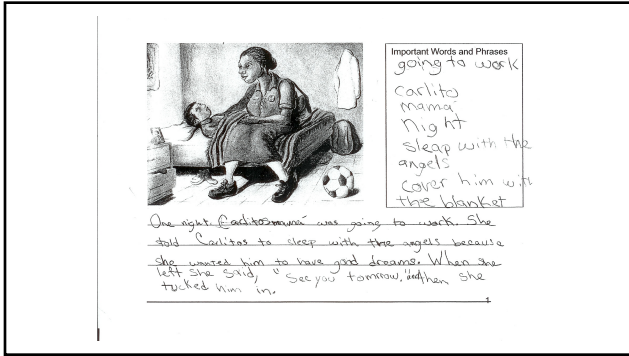 Important Words and Phrases
going to work
Carlito
mama
night
sleap with the
angels
cover him with
the blanket
One night Carlitos mama was going to work. She
told Carlitos to sleep with the angels because
she wanted him to have good dreams. When she
left she said, "See you tomrow," and then she
tucked him in.
1